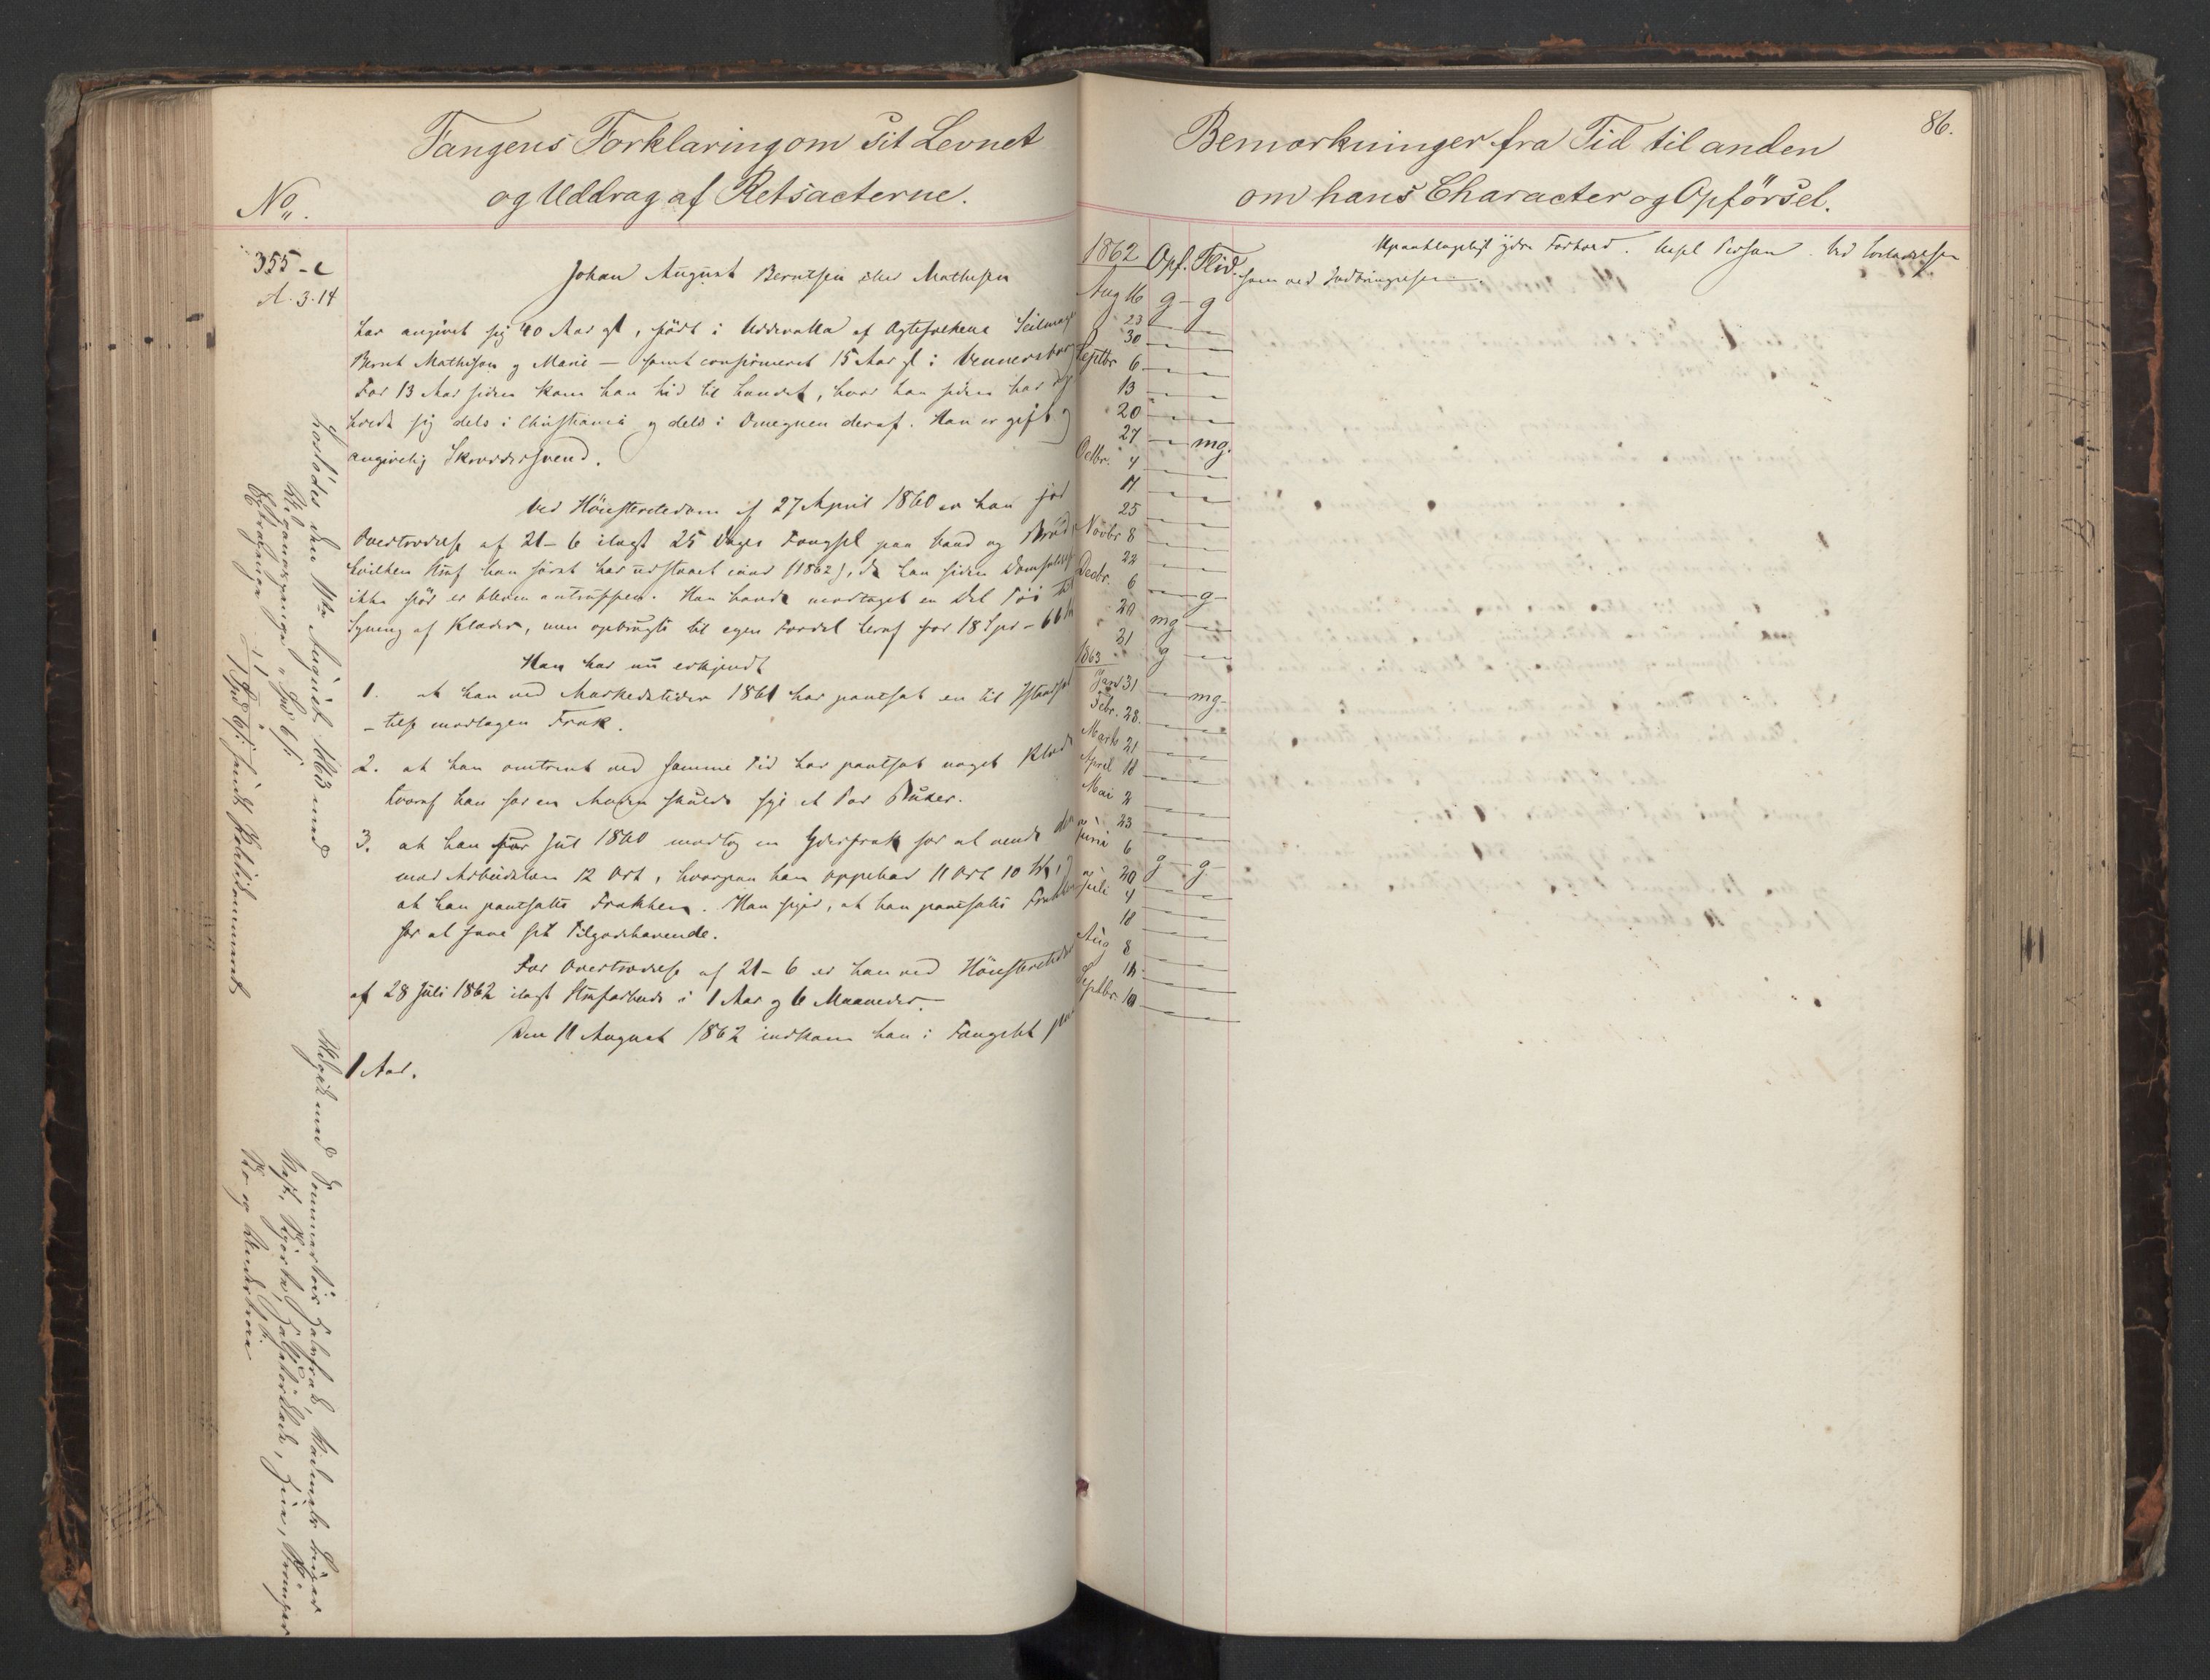 Fangens Forklaring om sit Levnet
og Uddrag af Retsacterne.
No.
355-c
A. 3. 14
Johan August Berntsen eller Mathisen
har angivet sig 40 Aar gl, født i Uddevalla af Ægtefolkene Seilmag
Bernt Mathisen og Marie — samt confirmeret 15 Aar gl i Wennersbor
For 13 Aar siden kom han hid til Landet, hvor han siden har op
holdt sig dels i Christiania og dels i Omegnen deraf. Han er gift og
angivelig Skræddersvend.
Ved Høiesteretsdom af 27 April 1860 er han for
Overtrædelse af 21-6 ilagt 25 Dages Fængsel paa Vand og Brød
hvilken Straf han først har udstaaet iaar (1862), da han siden
ikke før er bleven antruffen. Han havde modtaget en Del Tøi til
Syning af Klæder, men opbrugt til egen Fordel heraf for 18 Spd - 66
Han har nu erkjendt
1. at han ved Markedstiden 1861 har pantsat en til Istandsæt
-telse modtagen Frak.
2. at han omtrent ved samme Tid har pantsat noget Klæde
hvoraf han for en Anden skulde sye et Par Buxer.
3. at han før Jul 1860 modtog en Yderfrak for at vende den
mod Arbeidsløn 12 Ort, hvorpaa han oppebar 11 Ort 10
at han pantsatte Frakken. Han siger, at han pantsatte Frakken
for at faae sit Tilgodehavende.
For Overtrædelse af 21-6 er han ved Høiesteretsdom
af 28 Juli 1862 ilagt Strafarbeide i 1 Aar og 6 Maaneder.
Den 11 August 1862 indkom han i Fængslet paa
1 Aar.
Løslodes den 11te August 1863 med
1 Spd
Politikammeret
Afgik med Sommertøis Halvfrak, Vadmels Buxer
Vest, Skjorte, Halstørklæde, Hue, Strømper
Sko og
86.
Bemærkninger fra Tid til anden
om hans Character og Opførsel.
1862 Opf. Flid.
Upaaklageligt ydre Forhold. Usel Person. Ved Løsladelsen
som ved Indbringelsen
Aug 16 g - g
23 — —
30 — —
Septbr 6 — —
13 — —
20 — —
27 — mg.
Octbr. 4 — —
11 — —
25 — —
Novbr 8 — —
22 — —
Decbr. 6 — g -
20 mg —
31 g —
1863
Jan 31 — mg -
Febr. 28. — —
Marts 21 — —
April 18 — —
Mai 2 — —
23 — —
Juni 6 — —
20 g - g -
Juli 4 — —
18 — —
Aug 8 — —
Septbr. 10 — —